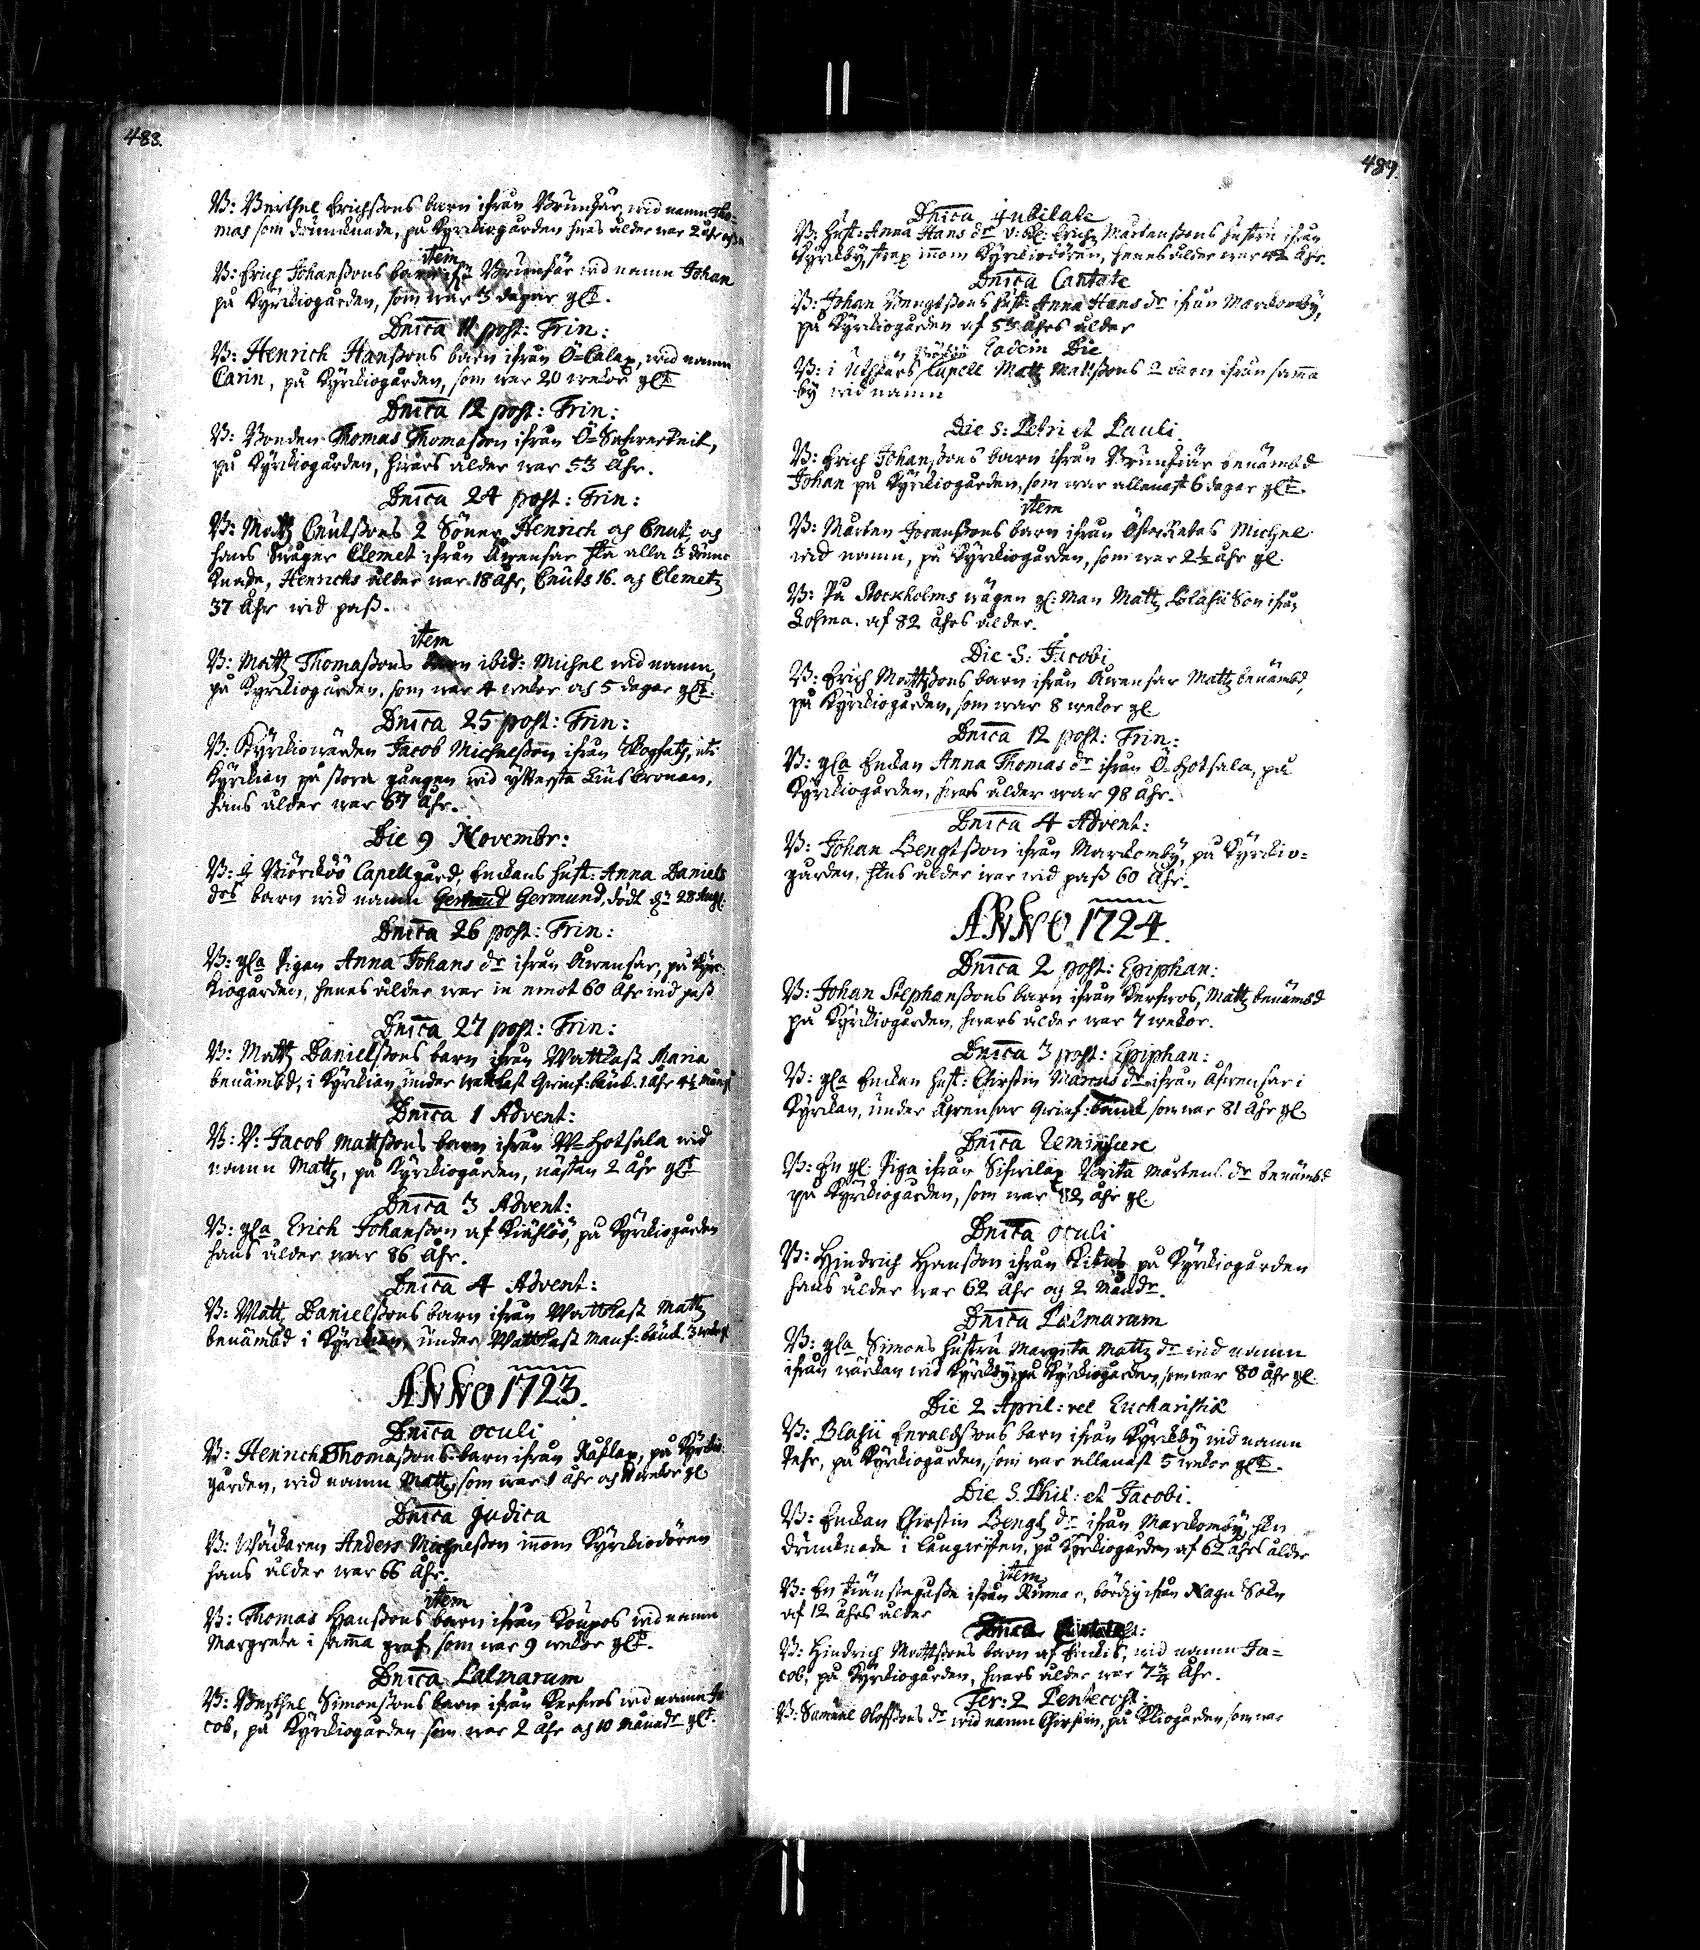 483.
B: Berthel Erichssons barn ifrån Brunskär, wid namn Tho=
mas som drunknade, på Kyrkiogården hwars ålder war 2 åhr
item
B: Erich Johanssons barn ifr. Brunskär wid namn Johan
på Kyrkiogården, som war 3 dagar glt.
Dnica 11 post: Trin:
B: Henrich Hanssons barn ifrån Ö=Calax, wid namn
Carin, på Kyrkiogården, som war 20 wekor glt
Dnica 12 post: Trin:
B: Bonden Thomas Thomasson ifrån Ö=
på Kyrkiogården, hwars ålder war 53 Åhr.
Dnica 24 post: Trin:
B: Matz Cnutssons 2 Söner Henrich och Cnut, och
hans Swåger Clemet ifrån Awensar alla 3 drunc
knade, Henrichs ålder war 18 Åhr, Cnuts 16. och Clemetz
37 Åhr wid pass.
item
B: Matz Thomassons barn ibid: Michel wid namn,
på Kyrkiogården, som war 4 wekor och 5 dagar glt.
Dnica 25 post: Trin:
B: Kyrkiowärden Jacob Michelsson ifrån uti
Kyrkian på stora gången wid ytterste Liuscronan,
hans ålder war 67 Åhr.
Die 9 Novembr:
B: i Biörcköö Capell gård, Enckans hust: Anna Daniels
drs barn wid namn Germund, födt d. 28 Aug.
Dnica 26 post: Trin:
B: gla Pigan Anna Johans dr ifrån Awensar, på Kyr=
kiogården, henes ålder war in emot 60 Åhr wid pass
Dnica 27 post: Trin:
B: Matz Danielssons barn ifrån Wattkast Maria
benämbd, i Kyrkian under wattkast bänck. 1 Åhr 4½ mån
Dnica 1 Advent:
B: V: Jacob Mattssons barn ifrån W=Hotsala wid
namn Matz, på Kyrkiogården, nästan 2 Åhr glt
Dnica 3 Advent:
B: gla Erich Johansson af på Kyrkiogården
hans ålder war 86 Åhr.
Dnica 4 Advent:
B: Matz Danielssons barn ifrån Wattkast Matz
benämbd i Kyrkian, under Wattkast Manf: bänck. 3
ANNO 1723.
Dnica Oculi
B: Henrich Thomassons barn ifrån på Kyrkio=
gården, wid namn Matz, som war 1 Åhr och 11 wekor gl
Dnica Judica
B: Wäckaren Anders Michelsson innom Kyrkiodören
hans ålder war 66 Åhr.
item
B: Thomas Hanssons barn ifrån Köupos wid namn
Margreta i samma graf, som war 9 wekor glt.
Dnica Palmarum
B: Berthel Simonssons barn ifrån wid namn Ja
cob, på Kyrkiogården som war 2 Åhr och 10 månadr glt.
484.
Dnica Jubilate
B: Hust: Anna Hans dr Erich Mårtenssons hustru ifrån
Kyrkby, innom Kyrkiodören, henes ålder war 42 Åhr.
Dnica Cantate
B: Johan Bengtssons hust: Anna Hans dr ifrån Marckomby,
på Kyrkiogården af 53 Åhrs ålder
Eodem Die
B: i Utskärs Capell Matz Mattssons 2 barn ifrån samma
by wid namn
Die S: Petri et Pauli
B: Erich Johanssons barn ifrån Brunskiär benämbd
Johan på Kyrkiogården, som war allenast 6 dagar glt.
item
B: Mårten Joranssons barn ifrån Österretas Michel
wid namn, på Kyrkiogården, som war 2½ åhr gl.
B: På Stockholms wägen gl: Man Matz Blasii Son ifrån
Kohma. af 82 Åhrs ålder.
Die S: Jacobi
B: Erich Mattssons barn ifrån Awensar Matz benämbd,
på Kyrkiogården, som war 8 wekor gl.
Dnica 12 post: Trin:
B: gla Enckan Anna Thomas dr ifrån Ö=Hotsala, på
Kyrkiogården, hwars ålder war 98 Åhr.
Dnica 4 Advent:
B: Johan Bengtsson ifrån Marckomby, på Kyrkio=
gården, ålder war wid pass 60 Åhr.
ANNO 1724.
Dnica 2 post: Epiphan:
B: Johan Stephanssons barn ifrån Matz benämbd
på Kyrkiogården, hwars ålder war 7 wekor.
Dnica 3 post: Epiphan:
B: gla Enckan hust: Chirstin Marcus dr ifrån Åhwensar i
Kyrckan, under Åhwensar bänck som war 81 Åhr gl
Dnica Reminiscere
B: En gl. Piga ifrån Brita Mårtens dr benämbd
på Kyrkiogården, som war 82 åhr gl.
Dnica Oculi
B: Hindrich Hansson ifrån på Kyrkiogården
hans ålder war 62 Åhr och 2 Månadr.
Dnica Palmarum
B: gla Simons hustru Margeta Mattz dr wid namn
ifrån wid Kyrkby, på Kyrkiogården, som war 80 Åhr gl.
Die 2 April: vel Eucharistiæ
B: Blasii Envaldssons barn ifrån Kyrkby wid namn
Pehr, på Kyrkiogården, som war allenast 5 wekor glt.
Die S. Phil: et Jacobi.
B: Enckan Chirstin Bengtz dr ifrån Marckomby,
drunknade i på Kyrkiogården af 62 Åhrs ålder
item
B: En ifrån Rumar, bördig ifrån Nagu Sokn
af 12 åhrs ålder
B: Hindrich Mattssons barn af Finkis, wid namn Ja=
cob, på Kyrkiogården, hwars ålder war 7¾ Åhr.
Fer: 2 Pentecost:
B: Samuel Oloffssons dr wid namn Chirstin, på Kkiogården som war